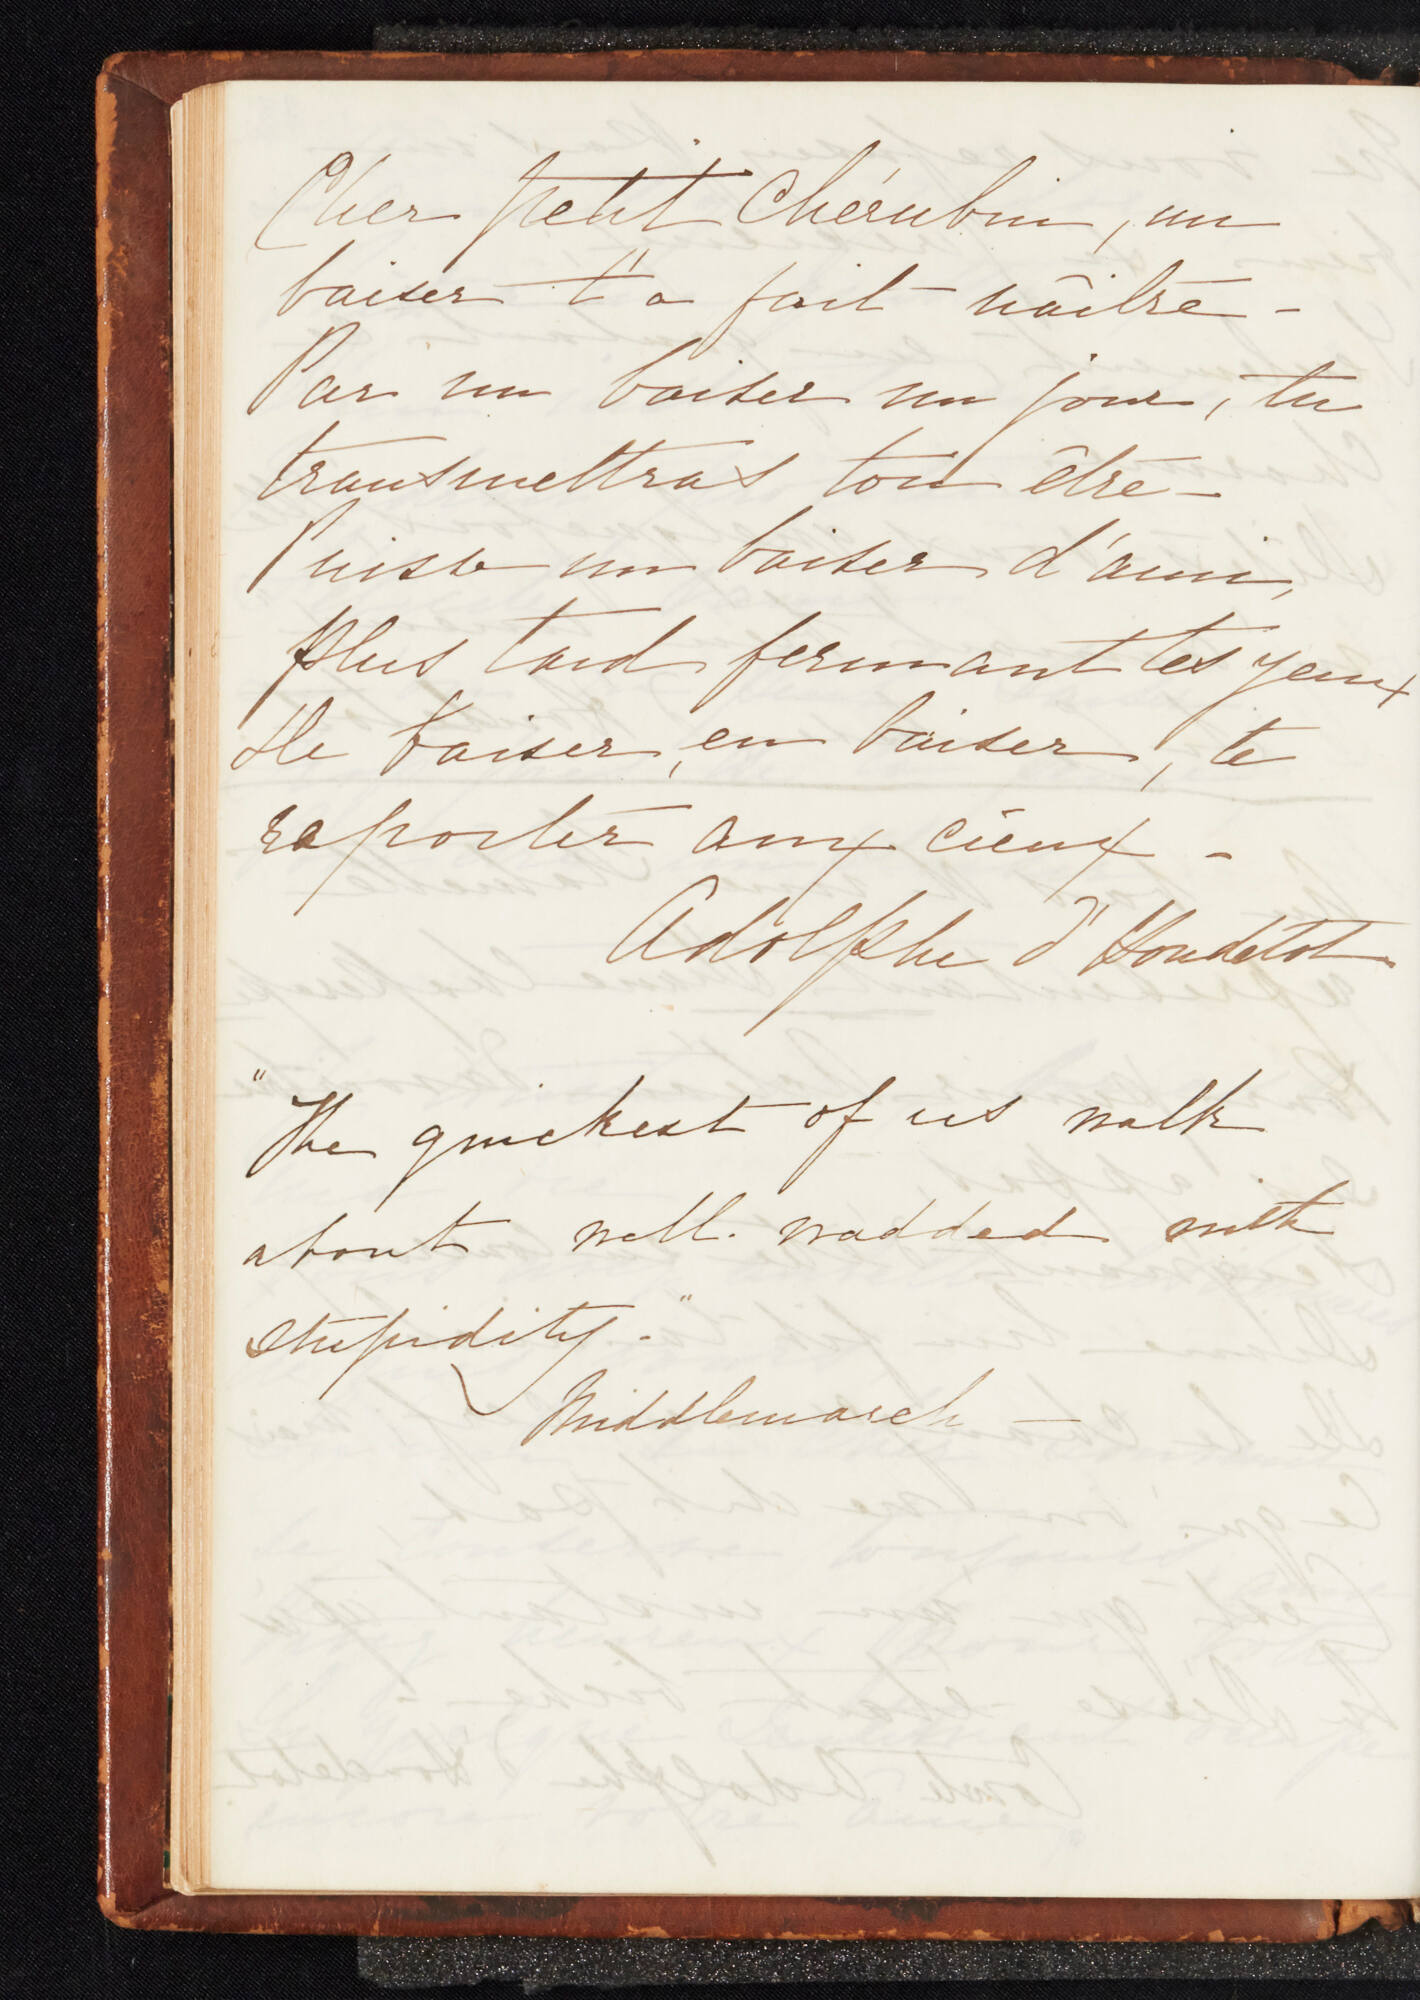 Cher petit Chérubin, un
baiser t'a fait naître -
Par un baiser un jour, tu
transmettras ton être -
Puisse un baiser d'ami,
plus tard fermant tes yeux
De baiser, en baiser, te
reporter aux cieux -
Adolphe d'Houdetot.
"The quickest of us walk
about well. wadded with
stupidity."
Middlemarch -